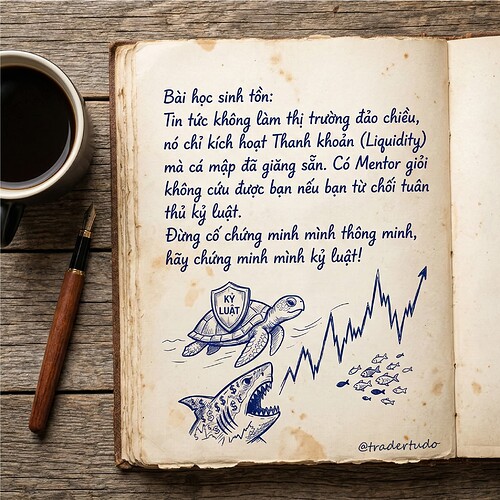 Bài học sinh tồn:
Tin tức không làm thị trường đảo chiều,
nó chỉ kích hoạt Thanh khoản (Liquidity)
mà cá mập đã giăng sẵn. Có Mentor giỏi
không cứu được bạn nếu bạn từ chối tuân
thủ kỷ luật.
Đừng cố chứng minh mình thông minh,
hãy chứng minh mình kỷ luật!
KỶ
LUẬT
@tradertudo